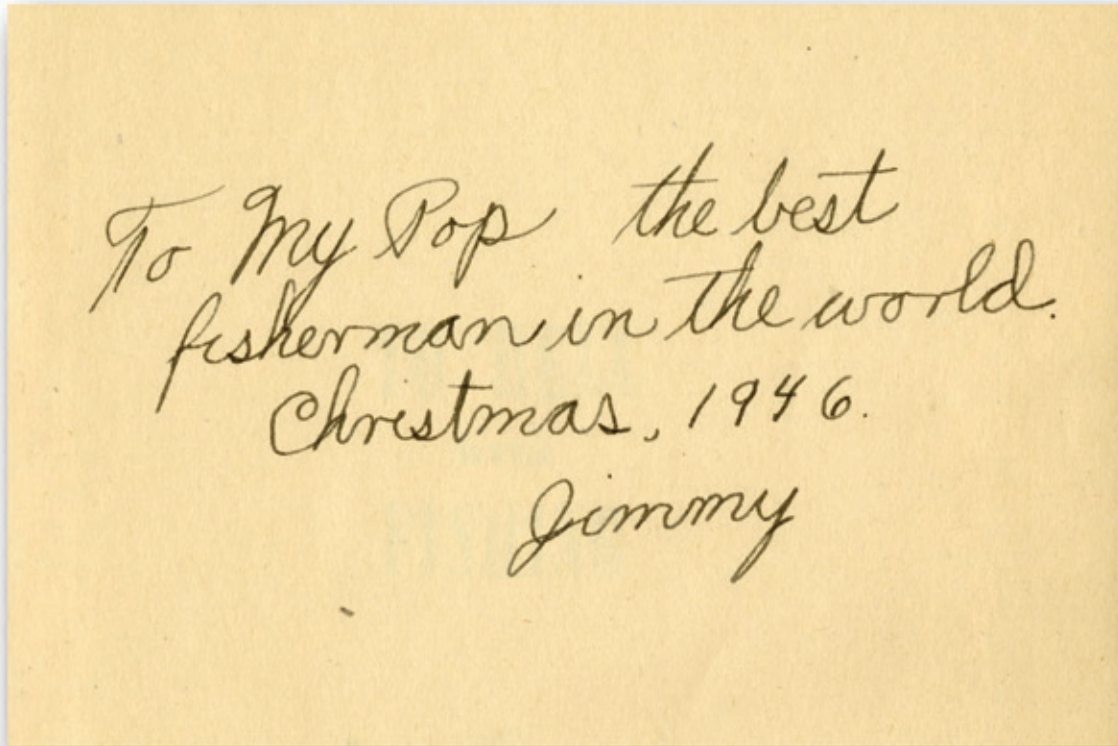 To My Pop the best
fisherman in the world.
Christmas, 1946.
Jimmy